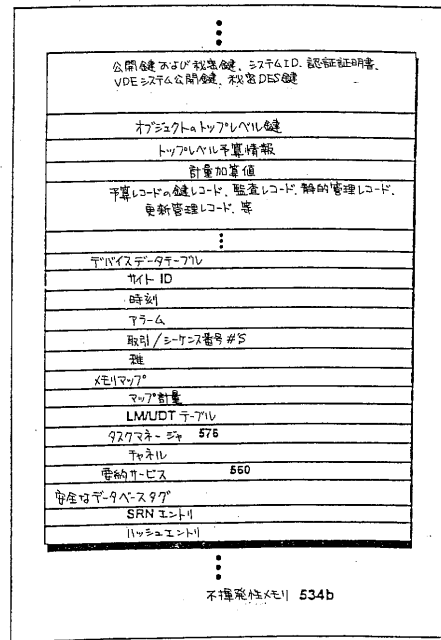 公開鍵および秘密鍵、システムID、認証証明書、
VDEシステム公開鍵、秘密DES鍵
オブジェクトのトップレベル鍵
トップレベル予算情報
計量加算値
予算レコードの鍵レコード、監査レコード、静的管理レコード、
更新管理レコード、等
デバイスデータテーブル
サイト ID
時刻
アラーム
取引/シーケンス番号#'S
雑
メモリマップ
マップ計量
LM/UDT テーブル
タスクマネージャ 576
チャネル
要約サービス 560
安全なデータベースタグ
SRN エントリ
ハッシュエントリ
不揮発性メモリ 534b